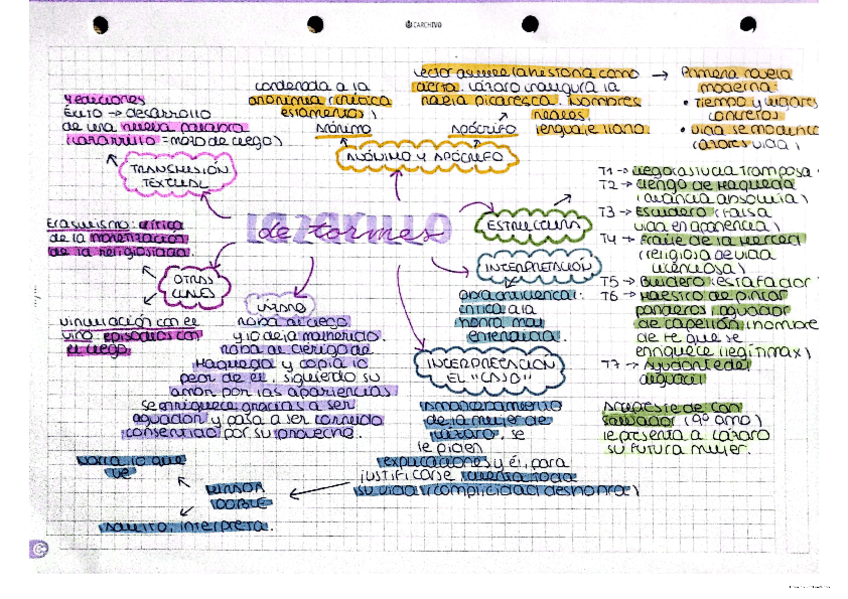 CARCHIVO
4 ediciones
Éxito → desarrollo
de una nueva palabra
(lazarillo = mozo de ciego)
TRANSMISIÓN
TEXTUAL
condenada a la
anonimia (crítica
estamentos)
Anónimo
Apócrifo
ANÓNIMO Y APÓCRIFO
lector asume la historia como
cierta. Lázaro inaugura la
novela picaresca. Nombres
reales
lenguaje llano
→ Primera novela
moderna:
• Tiempo y lugares
concretos
• vida se modifica
(Lázaro vida)
LAZARILLO
de tormes
ESTRUCTURA
T1 → ciego (astucia tramposa
T2 → clérigo de Maqueda
(avaricia absoluta)
T3 → Escudero (falsa
vida en apariencia)
T4 → Fraile de la Merced
(religioso de vida
licenciosa)
T5 → Buldero (estafador
T6 → Maestro de pintar
panderos, aguador
de capellán (hombre
de fe que se
enriquece legítimax)
T7 → Ayudante del
alguacil
Arcipreste de San
Salvador (9º amo)
le presenta a Lázaro
su futura mujer.
Erasmismo: crítica
de la monetización
de la religiosidad.
OTRAS
vinculación con el
vino: episodios con
el ciego.
roba al ciego
y lo deja malherido.
roba al clérigo de
Maqueda y copia lo
peor de él, siguiendo su
amor por las apariencias
se enriquece gracias a ser
aguador y pasa a ser cornudo
consentido por su provecho.
INTERPRETACIÓN
crítica a la
honra mal
entendida.
INTERPRETACIÓN
EL "CASO"
Amancebamiento
de la mujer de
Lázaro, se
le piden
explicaciones y él, para
justificarse cuenta toda
su vida (complicidad deshonra)
VISIÓN
DOBLE
narra lo que
ve
adulto, interpreta.